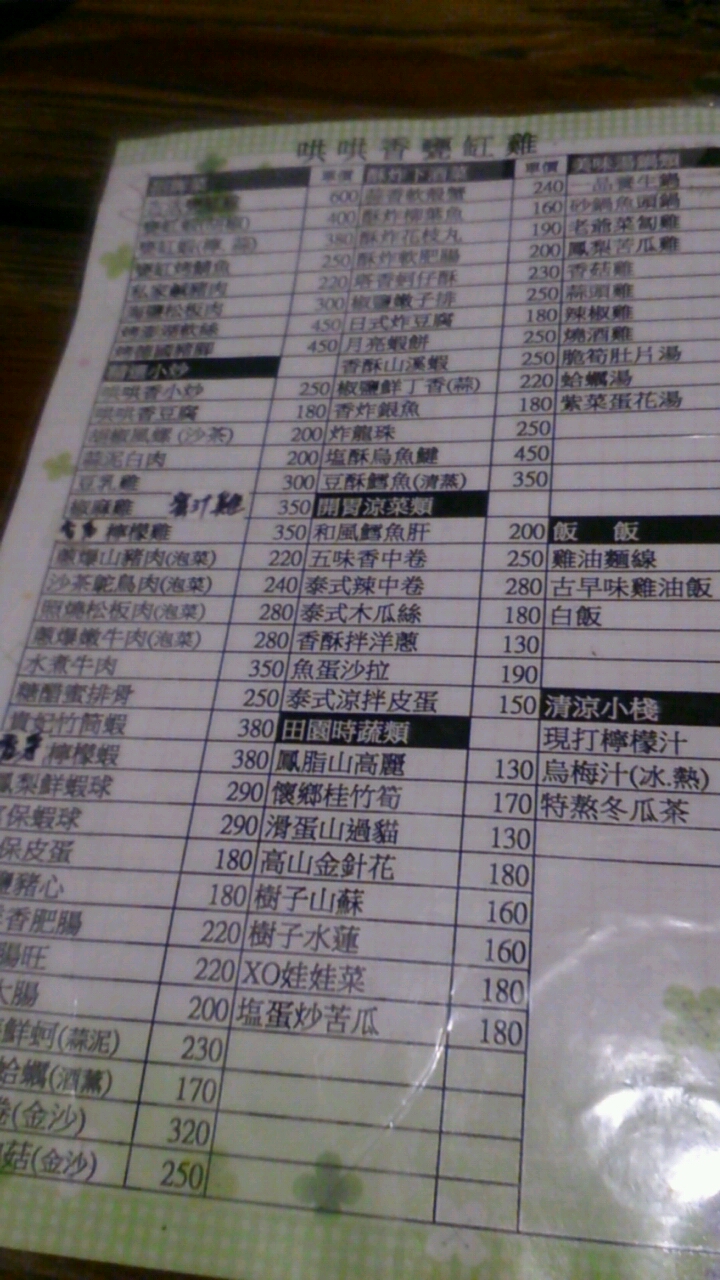 哄哄香甕缸雞
單價
600
甕缸蝦(胡椒) 400
甕缸蝦(檸.蒜) 380
甕缸烤鯛魚 250
私家鹹豬肉 220
海鹽松板肉 300
烤臺灣軟絲 450
烤德國豬腳 450
精選小炒
哄哄香小炒 250
哄哄香豆腐 180
胡椒風螺(沙茶) 200
蒜泥白肉 200
豆乳雞 300
椒麻雞 350
檸檬雞 350
蔥爆山豬肉(泡菜) 220
沙茶鴕鳥肉(泡菜) 240
照燒松板肉(泡菜) 280
蔥爆嫩牛肉(泡菜) 280
水煮牛肉 350
糖醋蜜排骨 250
貴妃竹筒蝦 380
檸檬蝦 380
鳳梨鮮蝦球 290
保蝦球 290
保皮蛋 180
豬心 180
香肥腸 220
腸旺 220
大腸 200
鮮蚵(蒜泥) 230
蛤蠣(酒薰) 170
(金沙) 320
菇(金沙) 250
酥炸下酒菜 單價
蒜香軟殼蟹 240
酥炸柳葉魚 160
酥炸花枝丸 190
酥炸軟肥腸 200
塔香蚵仔酥 230
椒鹽嫩子排 250
日式炸豆腐 180
月亮蝦餅 250
香酥山溪蝦 250
椒鹽鮮丁香(蒜) 220
香炸銀魚 180
炸龍珠 250
塩酥烏魚鰎 450
豆酥鱈魚(清蒸) 350
開胃涼菜類
和風鱈魚肝 200
五味香中卷 250
泰式辣中卷 280
泰式木瓜絲 180
香酥拌洋蔥 130
魚蛋沙拉 190
泰式涼拌皮蛋 150
田園時蔬類
鳳脂山高麗 130
懷鄉桂竹筍 170
滑蛋山過貓 130
高山金針花 180
樹子山蘇 160
樹子水蓮 160
XO娃娃菜 180
塩蛋炒苦瓜 180
美味湯鍋類
一品養生鍋
砂鍋魚頭鍋
老爺菜匏雞
鳳梨苦瓜雞
香菇雞
蒜頭雞
辣椒雞
燒酒雞
脆筍肚片湯
蛤蠣湯
紫菜蛋花湯
飯 飯
雞油麵線
古早味雞油飯
白飯
清涼小棧
現打檸檬汁
烏梅汁(冰.熱)
特熬冬瓜茶